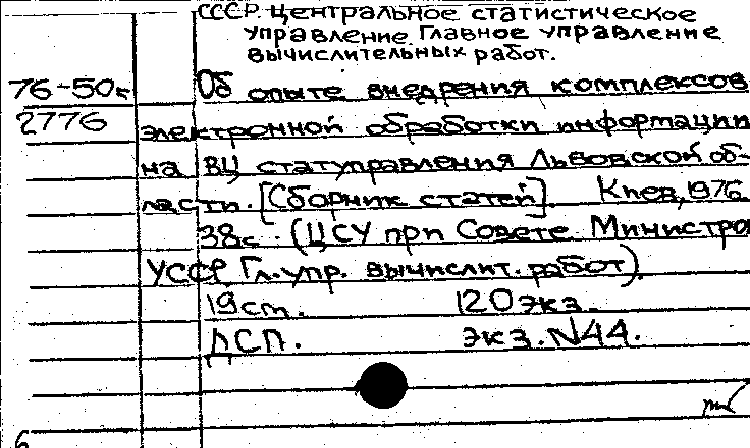 СССР. Центральное статистическое
управление Главное управление
вычислительных работ.
76-50к Об опыте внедрения комплексов
2776 электронной обработки информации
на ВЦ статуправления Львовской об-
ласти. [Сборник статей]. Киев, 1976
38с. (ЦСУ при Совете Министро
УССР Гл. упр. вычислит. работ).
19 ст. 120 экз.
ДСП. экз. N44.
6